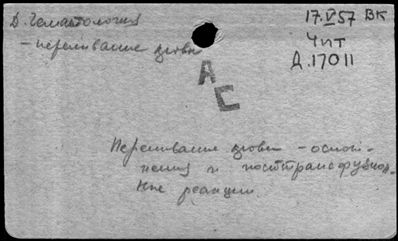 Д. Гематология
17.V 57 ВК
- переливание крови
Чит
Д.17011
АС
Переливание крови - ослож-
нения и посттрансфузион-
ные реакции.